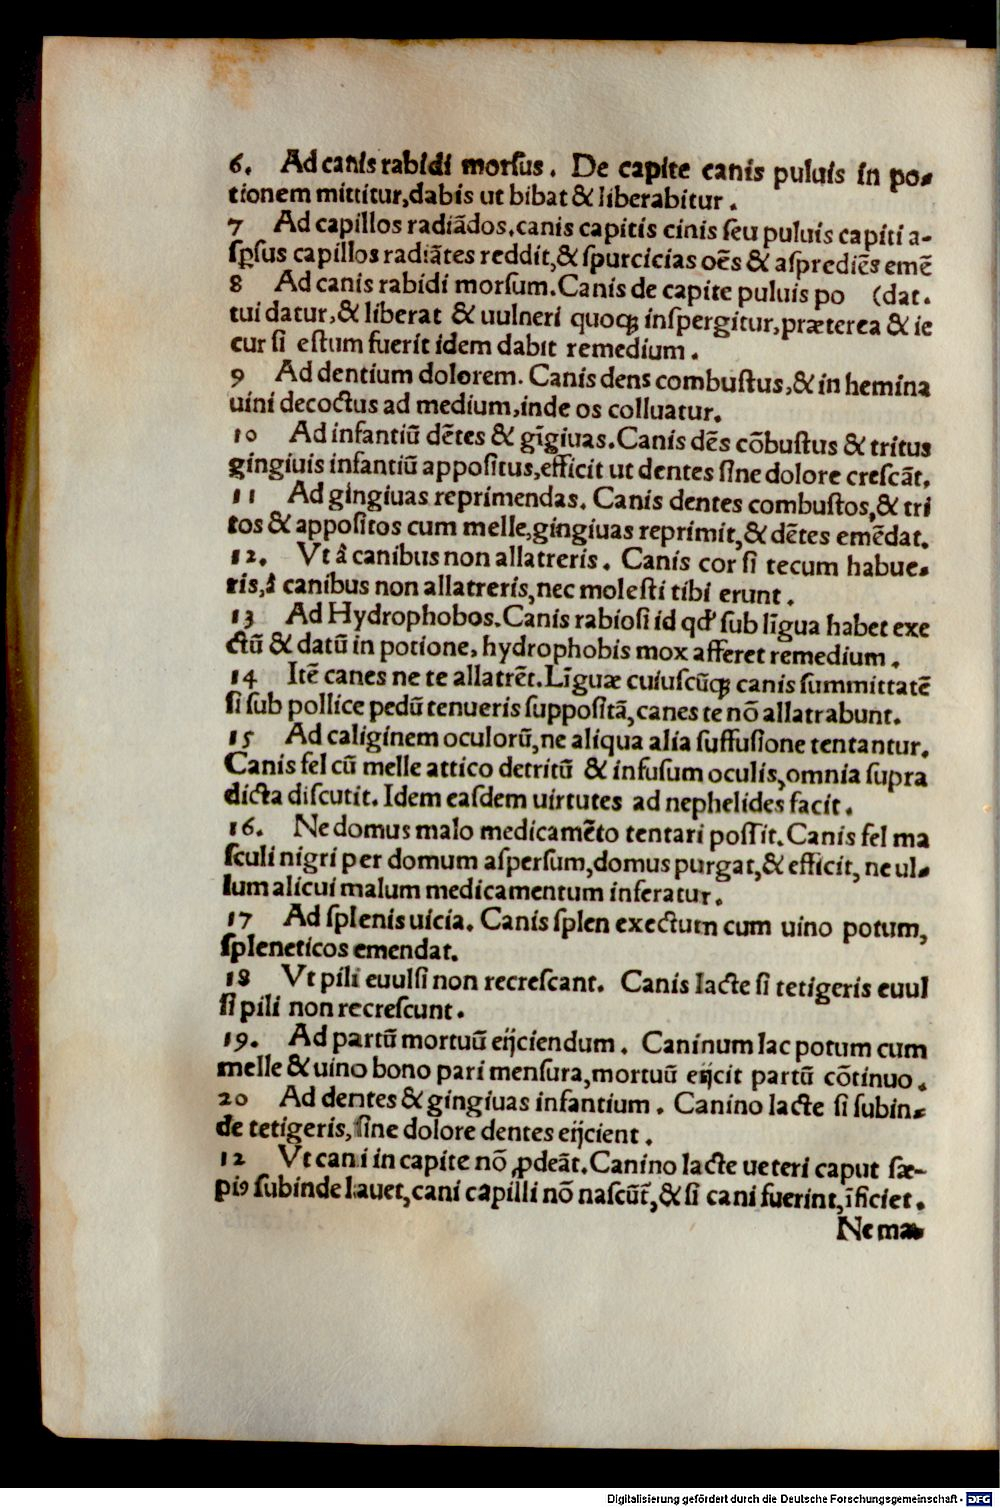 6. Ad canis rabidi morſus. De capite canis puluis in po-
tionem mittitur, dabis ut bibat & liberabitur.
7 Ad capillos radiãdos. canis capitis cinis ſeu puluis capiti a-
ſꝑſus capillos radiãtes reddit, & ſpurcicias oẽs & aſprediẽs emẽ
8 Ad canis rabidi morſum. Canis de capite puluis po (dat.
tui datur, & liberat & uulneri quoqꝫ inſpergitur, præterea & ie
cur ſi eſtum fuerit idem dabit remedium.
9 Ad dentium dolorem. Canis dens combuſtus, & in hemina
uini decoctus ad medium, inde os colluatur.
10 Ad infantiũ dẽtes & gĩgiuas. Canis dẽs cõbuſtus & tritus
gingiuis infantiũ appoſitus, efficit ut dentes ſine dolore creſcãt.
11 Ad gingiuas reprimendas. Canis dentes combuſtos, & tri
tos & appoſitos cum melle, gingiuas reprimit, & dẽtes emẽdat.
12. Vt â canibus non allatreris. Canis cor ſi tecum habue-
ris, â canibus non allatreris, nec moleſti tibi erunt.
13 Ad Hydrophobos. Canis rabioſi id qd' ſub lĩgua habet exe
ctũ & datũ in potione, hydrophobis mox afferet remedium.
14 Itẽ canes ne te allatrẽt. Lĩguæ cuiuſcũqꝫ canis ſummittatẽ
ſi ſub pollice pedũ tenueris ſuppoſitã, canes te nõ allatrabunt.
15 Ad caliginem oculorũ, ne aliqua alia ſuffuſione tentantur.
Canis fel cũ melle attico detritũ & infuſum oculis, omnia ſupra
dicta diſcutit. Idem eaſdem uirtutes ad nephelides facit.
16. Ne domus malo medicamẽto tentari poſſit. Canis fel ma
ſculi nigri per domum aſperſum, domus purgat, & efficit, ne ul-
lum alicui malum medicamentum inferatur.
17 Ad ſplenis uicia. Canis ſplen exectum cum uino potum,
ſpleneticos emendat.
18 Vt pili euulſi non recreſcant. Canis lacte ſi tetigeris euul
ſi pili non recreſcunt.
19. Ad partũ mortuũ eijciendum. Caninum lac potum cum
melle & uino bono pari menſura, mortuũ eijcit partũ cõtinuo.
20 Ad dentes & gingiuas infantium. Canino lacte ſi ſubin-
de tetigeris, ſine dolore dentes eijcient.
12 Vt cani in capite nõ ꝓdeãt. Canino lacte ueteri caput ſæ-
piꝰ ſubinde lauet, cani capilli nõ naſcũt̃, & ſi cani fuerint, ĩficiet.
Ne ma-
Digitalisierung gefördert durch die Deutsche Forschungsgemeinschaft - DFG